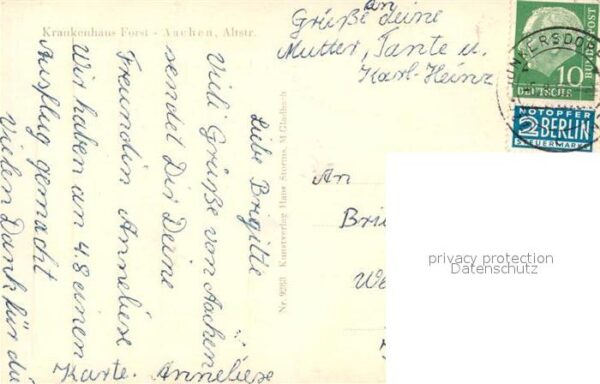 Krankenhaus Forst - Aachen, Altstr.
Liebe Brigitte
Viele Grüße von Aachen
sendet Dir Deine
Freundin Anneliese
Wir haben an 4.8 einen
Ausflug gemacht
Vielen Dank für die
Karte. Anneliese
Grüße an deine
Mutter, Tante u.
Karl-Heinz
Nr. 9283 Kunstverlag Hans Storms, M.Gladbach
An
Bri
We
10
DEUTSCHE
BUNDESPOST
NOTOPFER
2 BERLIN
STEUERMARKE
privacy protection
Datenschutz